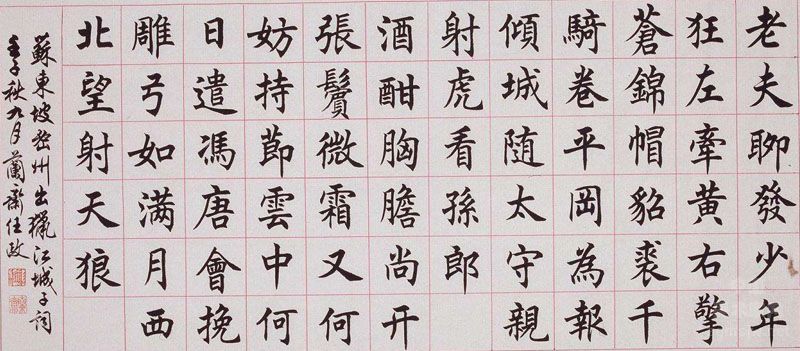 老夫聊發少年
狂左牽黃右擎
蒼錦帽貂裘千
騎卷平岡為報
傾城随太守親
射虎看孫郎
酒酣胸膽尚开
張鬢微霜又何
妨持節雲中何
日遣馮唐會挽
雕弓如满月西
北望射天狼
蘇東坡密州出獵江城子詞
壬子秋九月蘭齋任政